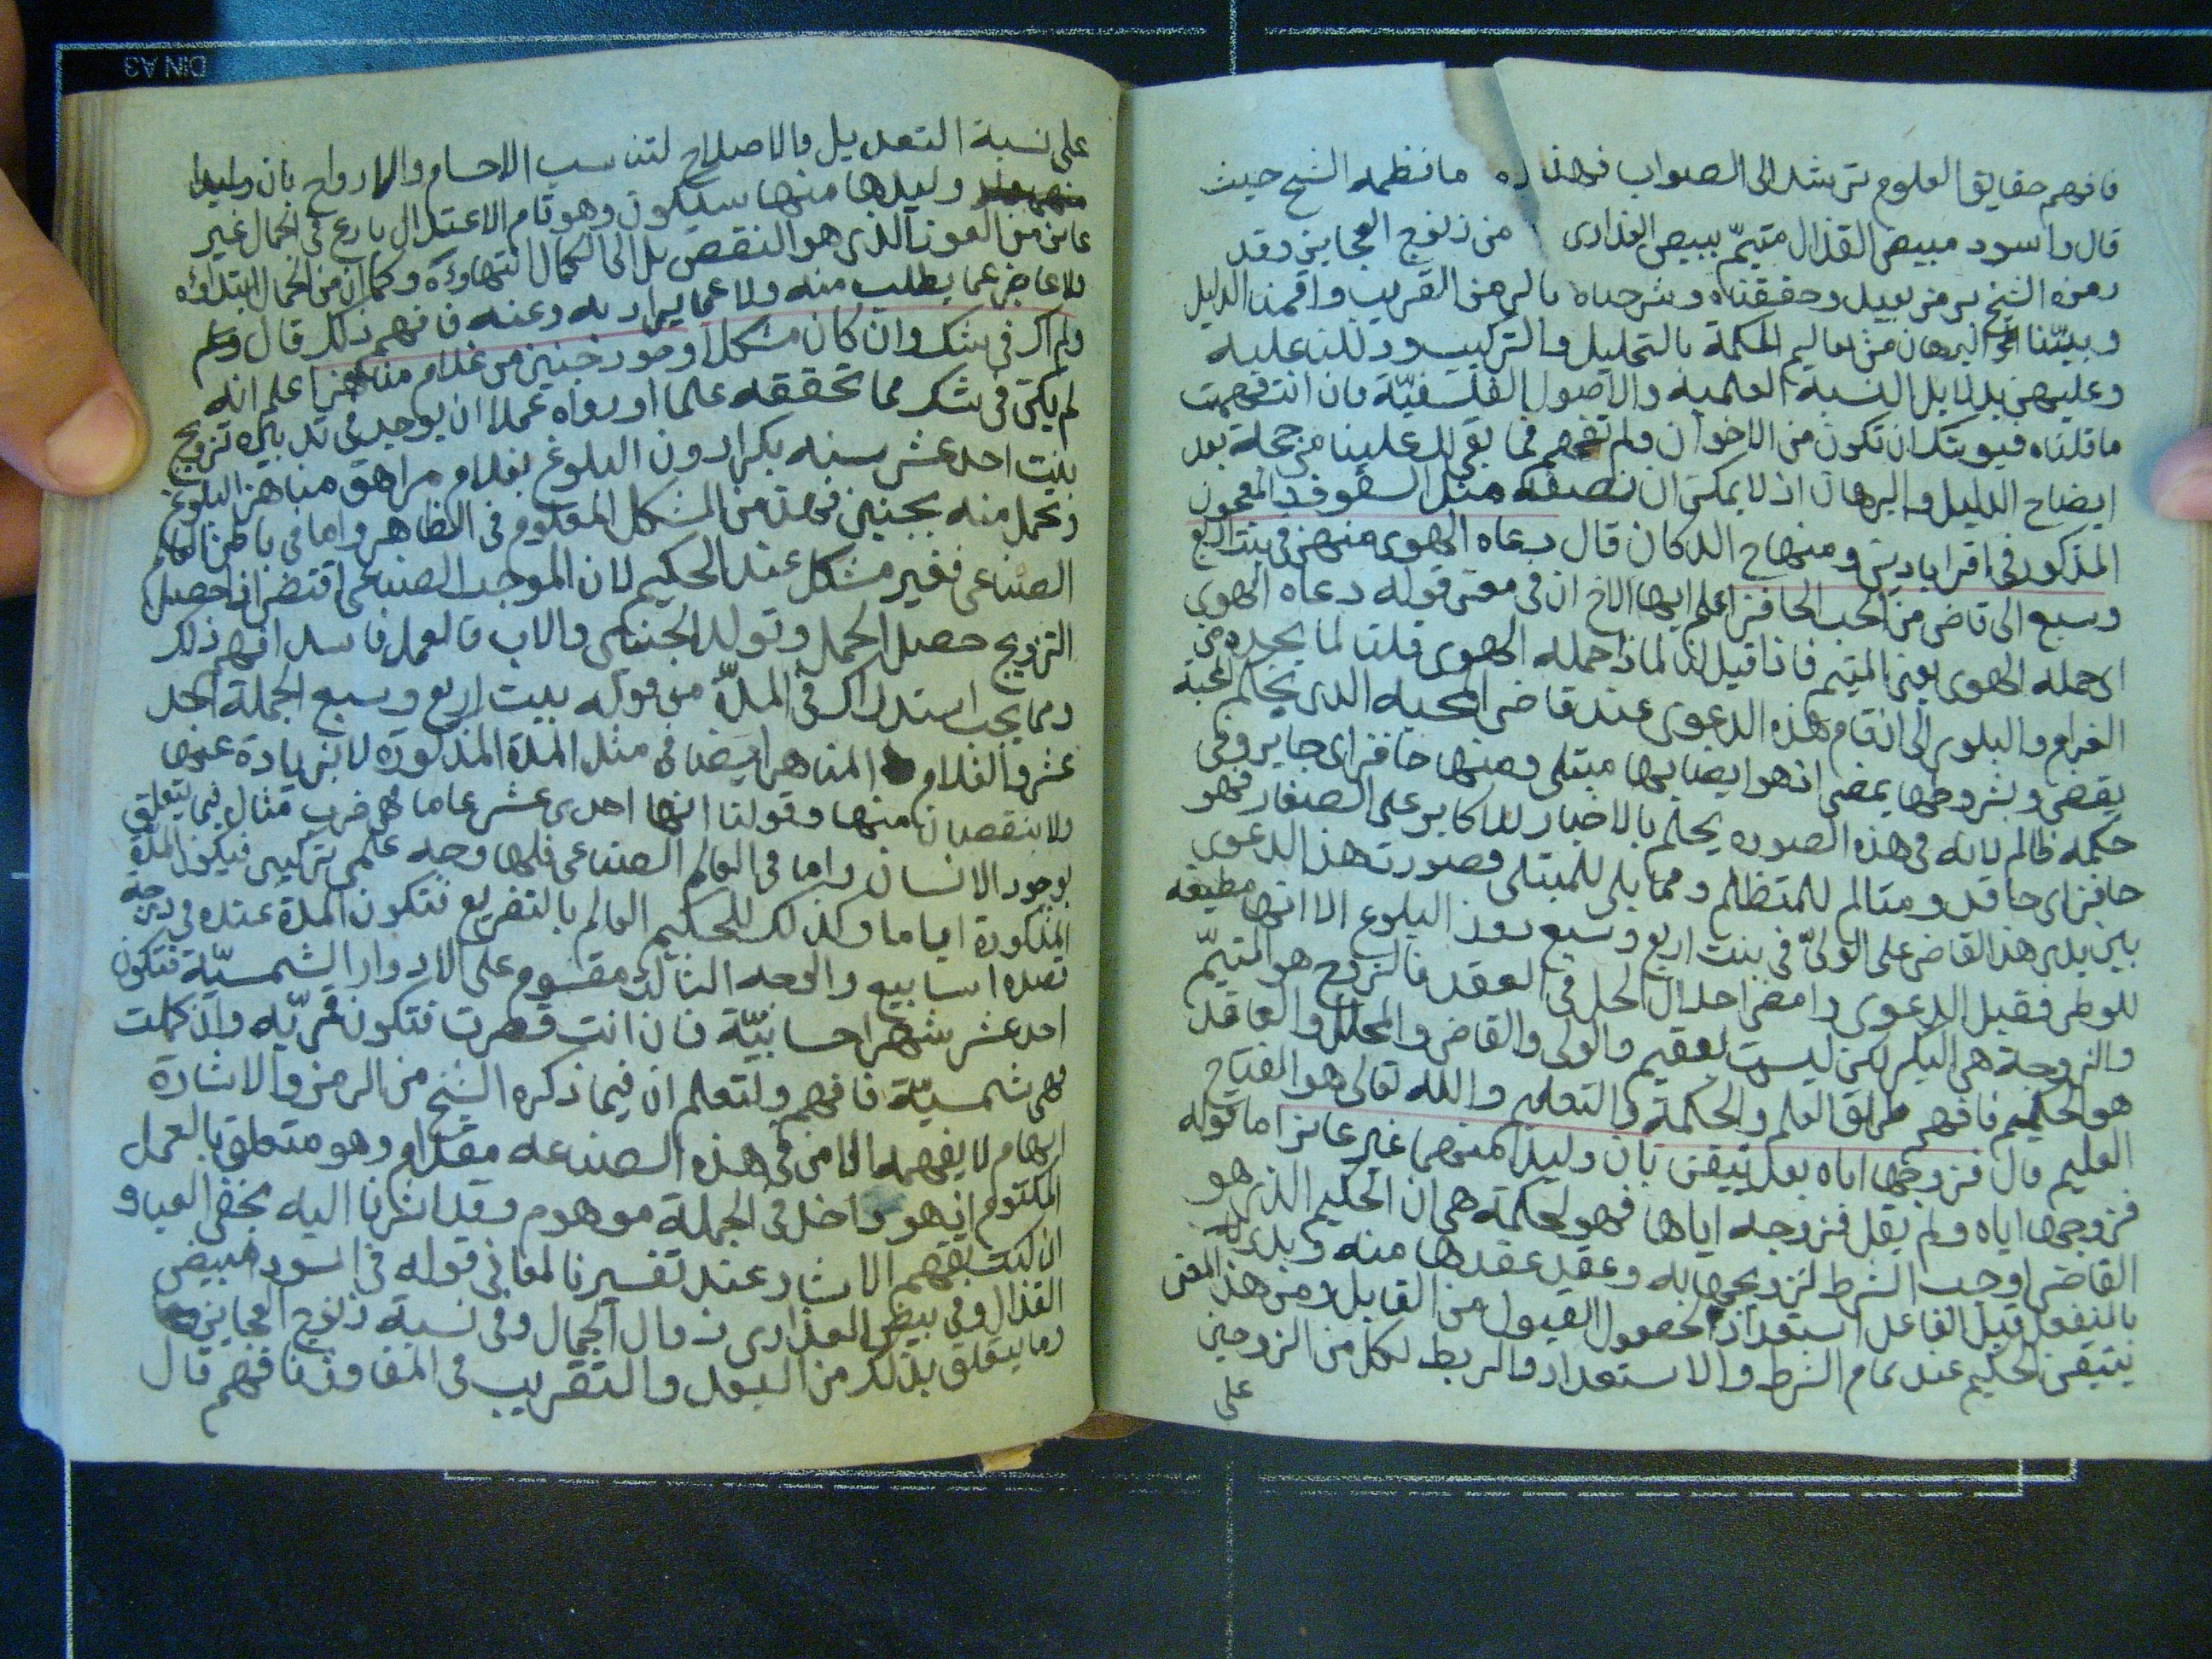 فافهم حقايق العلوم ترشد الى الصواب فهذا ما نظمه الشيخ حيث
قال واسود مبيض القذال متيم ببيض العذارى من زنوج العجايز وقد
رمزه الشيخ برمز بعيد وحققناه وشرحناه بالرمز القريب واقمنا الدليل
وبيّنا البرهان من معاليم الحكمة بالتحليل والتركيب ودللنا عليه
وعليهن بدلايل النسبة العلمية والاصول الفلسفيّة فان انت فهمت
ما قلناه فيوشك ان تكون من الاخوان ولم تفهم فما بقى لك علينا من حجة بعد
ايضاح الدليل والبرهان اذ لا يمكن ان نصفه مثل السفوف والمعجون
المذكور في اقراباديز ومنهاج الدكان قال دعاه الهوى منهن في بنت اربع
وسبع الى قاض من الحب حافز اعلم ايها الاخ ان في معنى قوله دعاه الهوى
اى حمله الهوى يعنى المتيم فاذا قيل لنا لماذا حمله الهوى قلنا لما يجده من
الغرام والبلوى الى ان قام هذه الدعوى عند قاضى المحبه الذى يحاكم المحبة
يقضى وبشروطها يمضى اذ هو ايضا بها مبتلى ومنها حافز اى جاير وفى
حكمه ظالم لانه في هذه الصوره يحكم بالاخبار للاكابر على الصغار فهو
حافز اى حاقد ومتالم للمتظلم ومما بلى للمبتلى فصورت هذا الدعوى
بين يدى هذا القاضى على الولىّ في بنت اربع وسبع دون البلوغ الا انها مطيقه
للوطى فقبل الدعوى وامضى احلال الحل في العقد فالزوج هو المتيّم
والزوجة هى البكر لكن ليست بعقيم والولى والقاضى والمحلل والعاقد
هو الحكيم فافهم طرايق العلم والحكمة والتعليم والله تعالى هو الفتاح
العليم قال فزوجها اياه بعد تيقن بان وليدا منهما غير عايز اما قوله
فزوجها اياه ولم يقل فزوجه اياها فهو لحكمة هى ان الحكيم الذى هو
القاضى اوجب الشرط لتزويجها به وعقد عقدها منه وبدى له
بالنفعل قبل الفاعل استعدادا لحصول القبول من القابل ومن هذا المعنى
يتيقن الحكيم عند تمام الشرط والاستعداد والربط لكل من الزوجين
على
على نسبة التعديل والاصلاح لتناسب الاجسام والارواح بان وليدا
وليدها منها سيكون وهو تام الاعتدال بارع في الجمال غير
عايز من العوز الذى هو النقص بل الى الكمال انتهاؤه وكما ان من الجمال ابتداؤه
ولا عاجز عما يطلب منه ولا عما يراد به وعنه فافهم ذلك قال ولم
ولم اك في شك وان كان مشكلا وجود جنين من غلام مناهز اعلم انه
لم يكن في شك مما تحققه علما او رواه عملا ان يوجد في تدبيره تزويج
بنت احد عشر سنه بكرا دون البلوغ بغلام مراهق مناهز البلوغ
وتحمل منه بجنين فهذه من المشكل المعلوم في الظاهر واما في باطن العالم
الصناعى فغير مشكل عند الحكيم لان الموجب الصنبعى اقتضى اذا حصل
التزويج حصل الحمل وتولد الجنين والاب فالعمل فاسد افهم ذلك
ومما يجب استدراك في المدّة من قوله ببنت اربع وسبع الجملة احد
عشر والغلام المناهز ايضا في مثل المدة المذكورة لا بزيادة عنها
ولا بنقصان منها وقولنا انها احدى عشر عاما هى ضرب مثال فيما يتعلق
بوجود الانسان واما في العالم الصناعى فلها وجه علمى تركيبى فيكون المدة
المذكورة اياما وكذلك للحكيم العالم بالتفريع فتكون المدة عنده في درجة
تصده اسابيع والوجه الثالث مقسوم على الادوار الشمسيّة فتكون
احد عشر شهرا حسابيّة فان انت قصرت فتكون قمريّه وان كملت
فهى شمسيّة فافهم ولتعلم ان فيما ذكره الشيخ من الرمز والاشارة
ابهام لا يفهمه الا من في هذه الصناعه مقدام وهو متعلق بالعمل
المكتوم اذ هو داخل في الجملة موهوم وقد اشرنا اليه بخفى العبار
ان كنت تفهم الاشار عند تفسيرنا لمعانى قوله في اسود مبيض
القذال وفى بيض العذارى ذوات الجمال وفى نسبة زنوج العجايز
وما يتعلق بذلك من البعد والتقريب في المفاوز فافهم قال